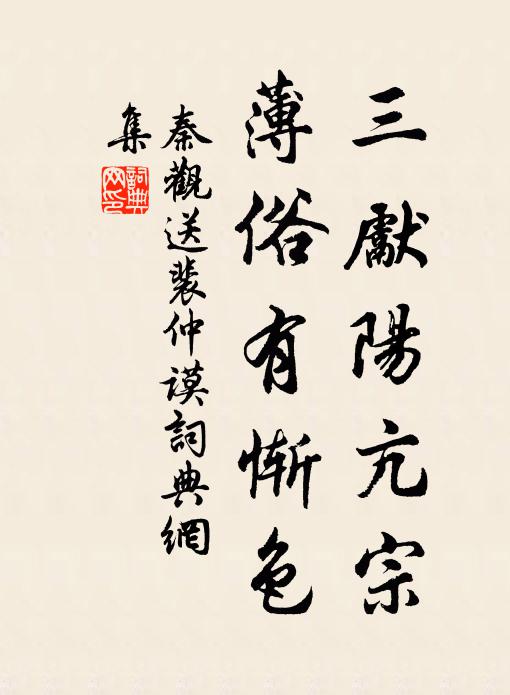 三獻陽亢宗
薄俗有慚色
秦觀送裴仲謨詞典網
集
詞典网印